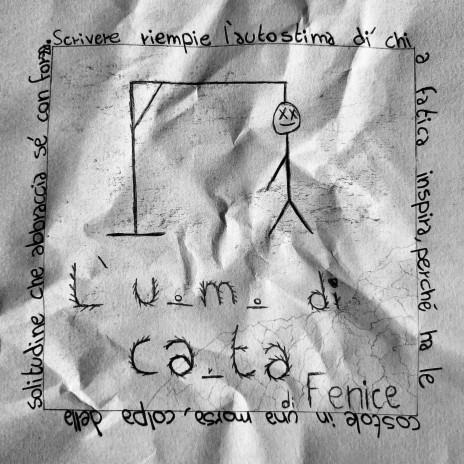 Scrivere riempie l'autostima di chi
a fatica inspira, perché ha le
costole in una morsa, colpa della
solitudine che abbraccia sé con forza.
L' u_m_ di
ca_ta
di Fenice